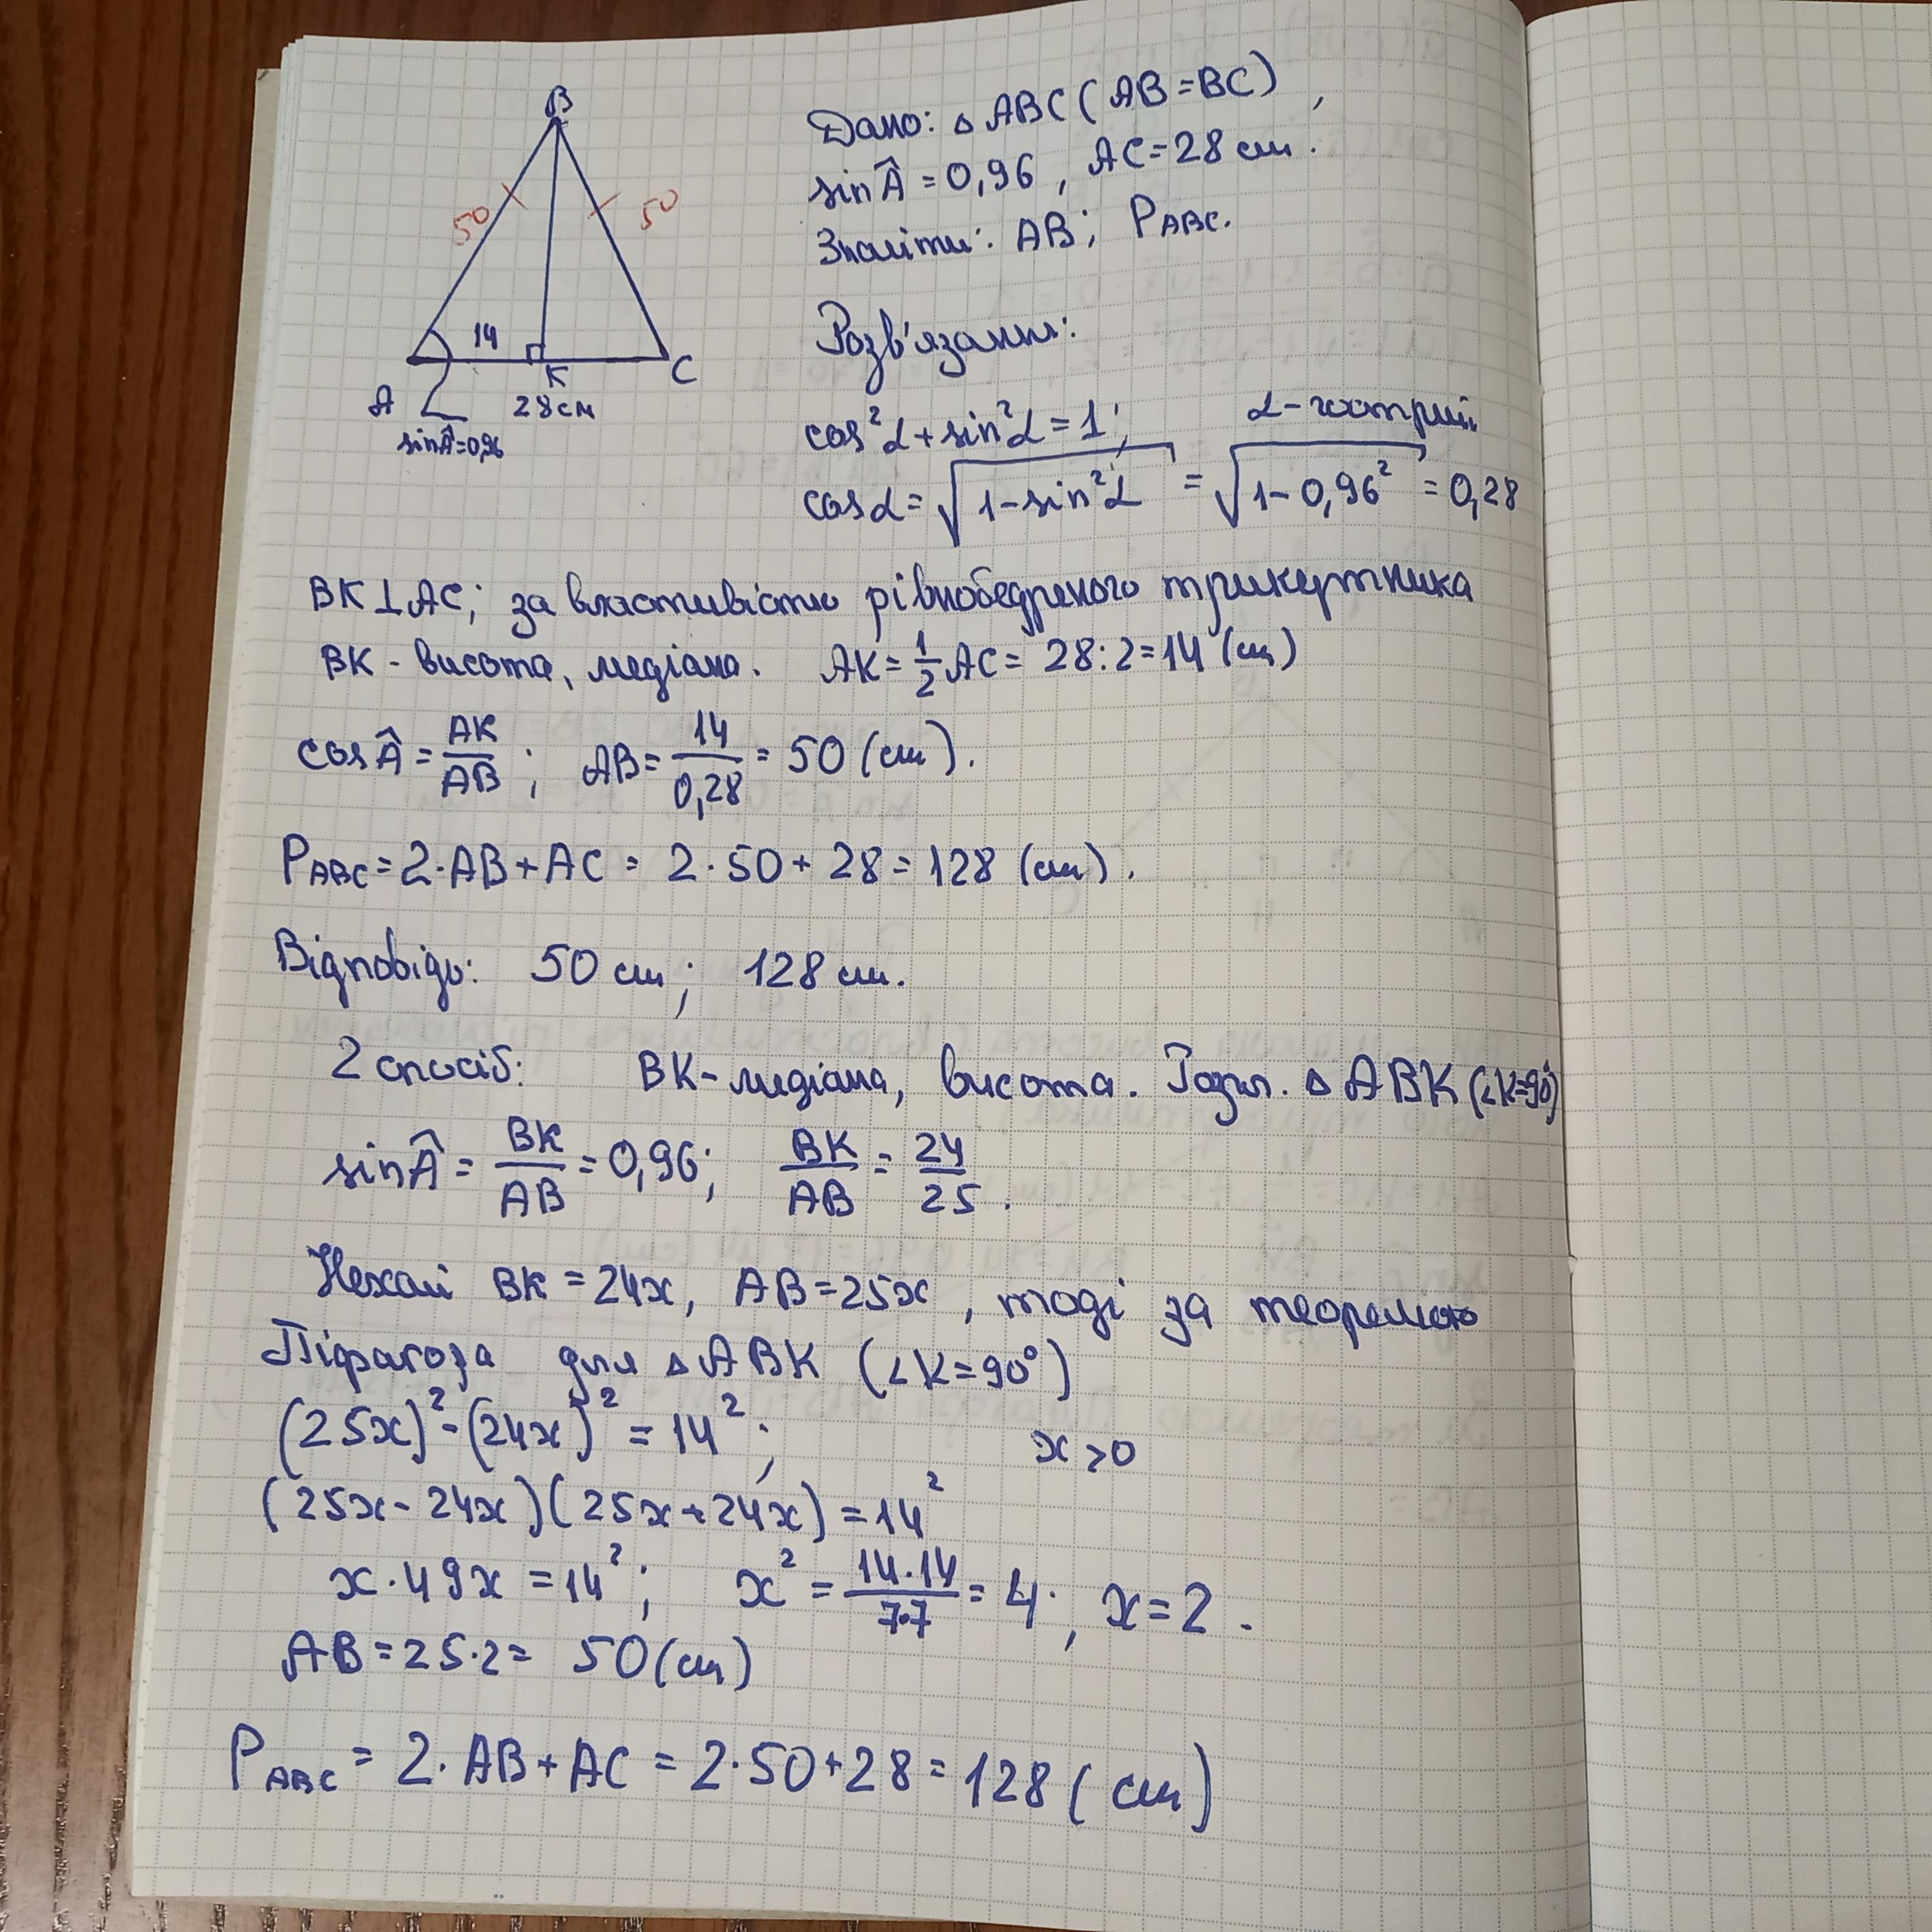 B
50
50
14
A
K
C
28 см
sin Â=0,96
Дано: △ABC (AB=BC),
sin Â = 0,96, AC=28 см.
Знайти: AB; P_ABC.
Розв'язання:
cos²α+sin²α=1; α-гострий
cosα=√(1-sin²α) = √(1-0,96²) = 0,28
BK⊥AC; за властивістю рівнобедреного трикутника
BK - висота, медіана. AK=1/2 AC= 28:2=14 (см)
cos Â = AK/AB; AB= 14/0,28 = 50 (см).
P_ABC=2·AB+AC = 2·50+28=128 (см).
Відповідь: 50 см; 128 см.
2 спосіб: BK-медіана, висота. Розгл. △ABK (∠K=90°)
sin Â = BK/AB = 0,96; BK/AB = 24/25.
Нехай BK=24x, AB=25x, тоді за теоремою
Піфагора для △ABK (∠K=90°)
(25x)²-(24x)²=14²; x>0
(25x-24x)(25x+24x)=14²
x·49x=14²; x²= 14·14/7·7 = 4; x=2.
AB=25·2= 50(см)
P_ABC = 2·AB+AC = 2·50+28=128 (см)